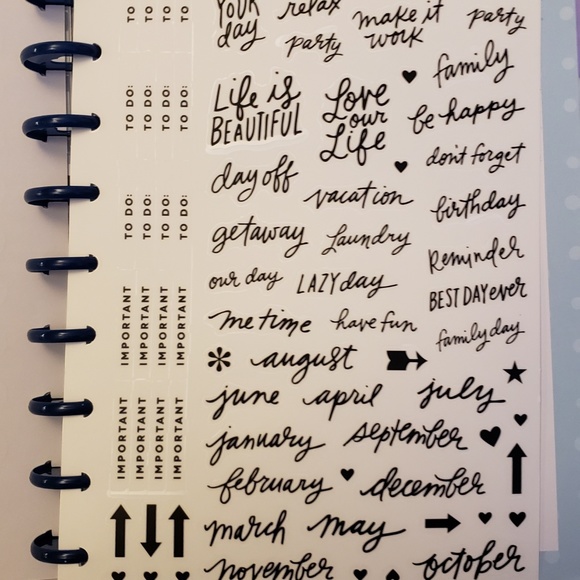 TO TO TO TO
YOUR day
relax
make it work
party
party
TO DO: TO DO: TO DO: TO DO:
Life is BEAUTIFUL
Love our Life
family
be happy
day off
vacation
don't forget
birthday
TO DO: TO DO: TO DO: TO DO:
getaway
laundry
Reminder
our day
LAZY day
BEST DAY ever
me time
have fun
family day
IMPORTANT IMPORTANT IMPORTANT IMPORTANT
august
june
april
july
IMPORTANT IMPORTANT IMPORTANT IMPORTANT
january
september
february
december
march
may
november
october